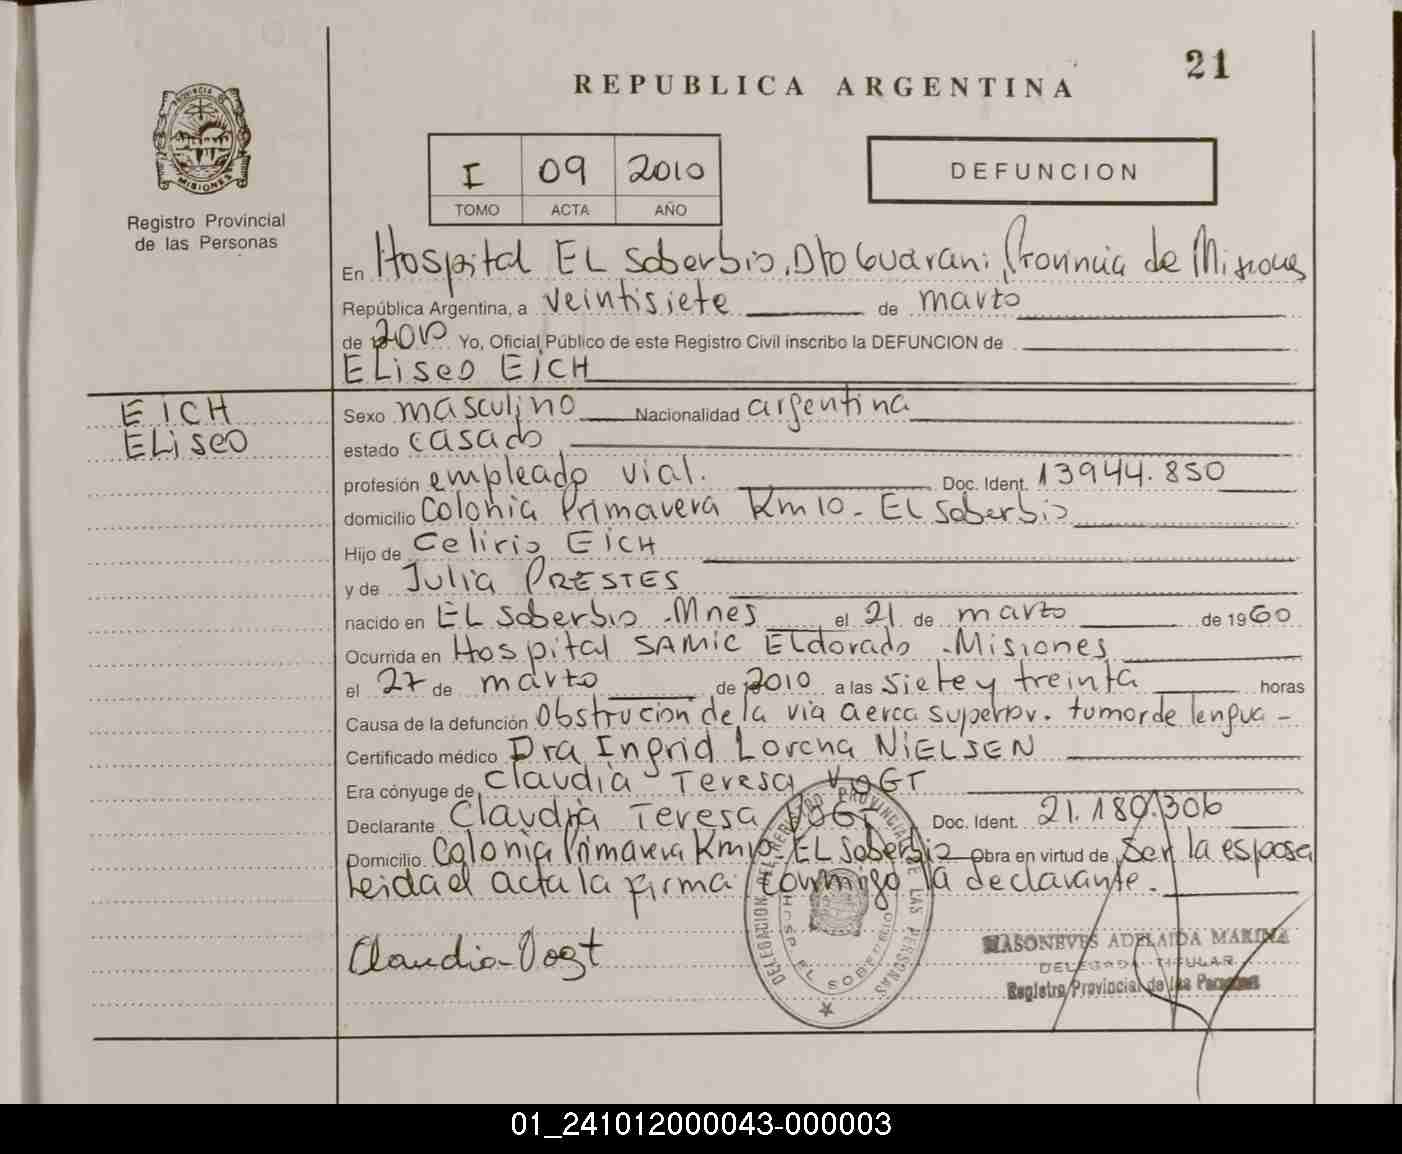 21
REPUBLICA ARGENTINA
PROVINCIA DE
MISIONES
Registro Provincial
de las Personas
I 09 2010
TOMO ACTA AÑO
DEFUNCION
En Hospital EL Soberbio, Dto Guarani, Provincia de Misiones
República Argentina, a veintisiete de marzo
de 2010 Yo, Oficial Público de este Registro Civil inscribo la DEFUNCION de
ELiseo EiCH
EiCH
ELiseo
Sexo masculino Nacionalidad argentina
estado casado
profesión empleado vial. Doc. Ident. 13944.850
domicilio Colonia Primavera Km 10 - EL Soberbio
Hijo de Celirio EiCH
y de Julia PRESTES
nacido en EL Soberbio - Mnes el 21 de marzo de 1960
Ocurrida en Hospital SAMIC Eldorado - Misiones
el 27 de marzo de 2010 a las siete y treinta horas
Causa de la defunción Obstrucion de la via aerea superior. tumor de lengua -
Certificado médico Dra Ingrid Lorena NiELSEN
Era cónyuge de Claudia Teresa VOGT
Declarante Claudia Teresa VOGT Doc. Ident. 21.180.306
Domicilio Colonia Primavera Km10. EL Soberbio Obra en virtud de ser la esposa
Leida el acta la firma conmigo la declarante.
Claudia Vogt
DELEGACION DEL REGISTRO PROVINCIAL DE LAS PERSONAS
HOSP. EL SOBERBIO
MASONEVES ADELAIDA MARINA
DELEGADA TITULAR
Registro Provincial de las Personas
01_241012000043-000003